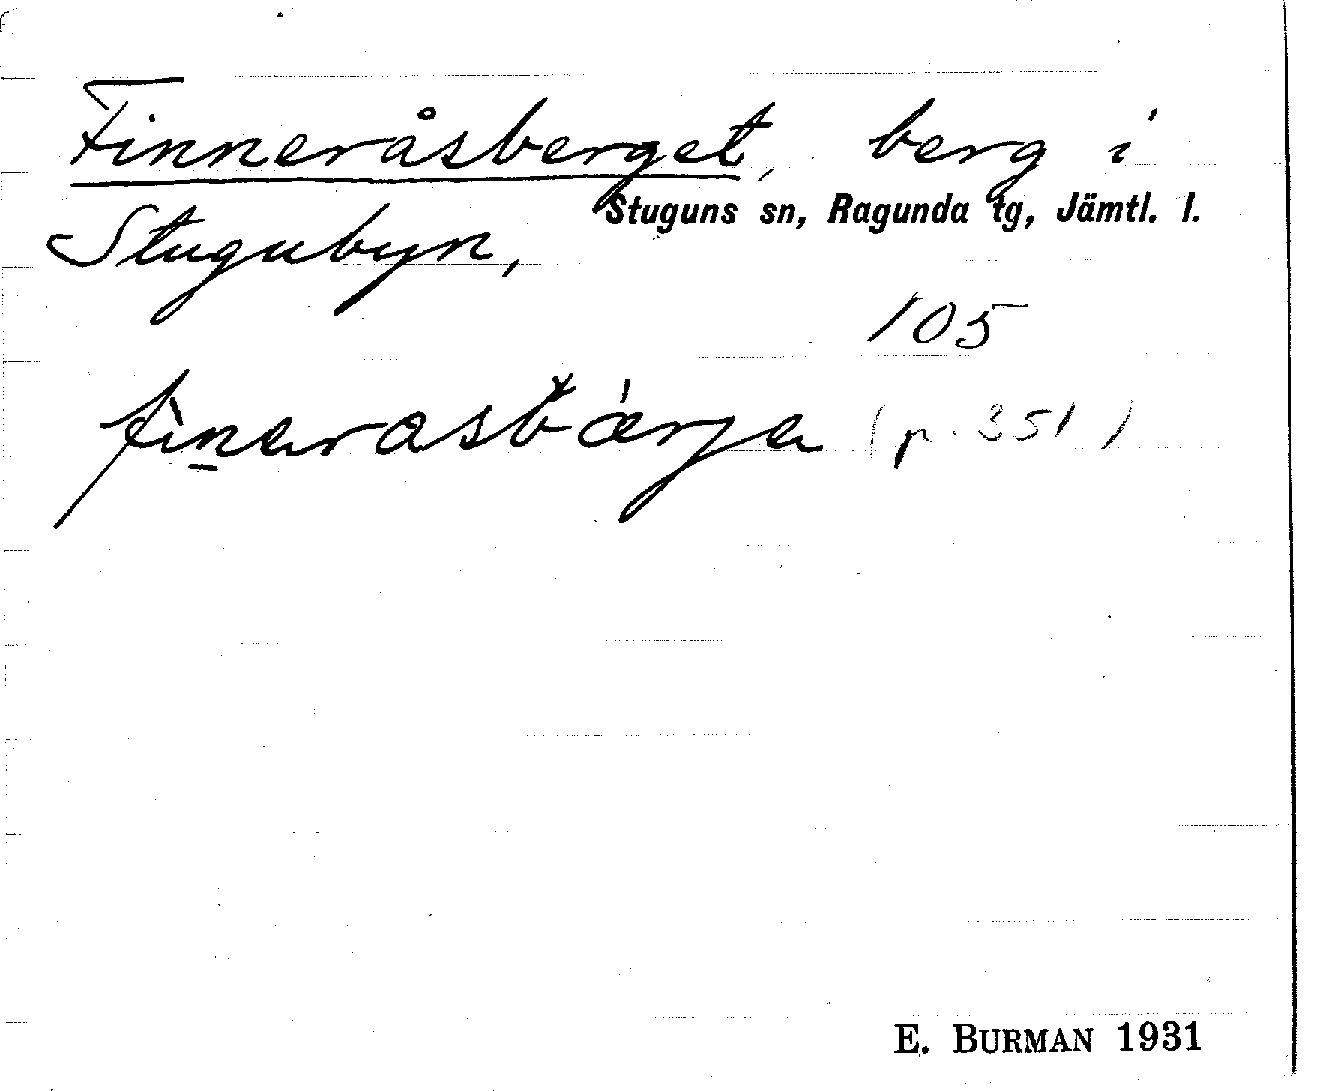 Finneråsberget, berg i
Stuguns sn, Ragunda tg, Jämtl. l.
Stugubyn,
105
fìn̲erasbǽrja (p. 351)
E. BURMAN 1931